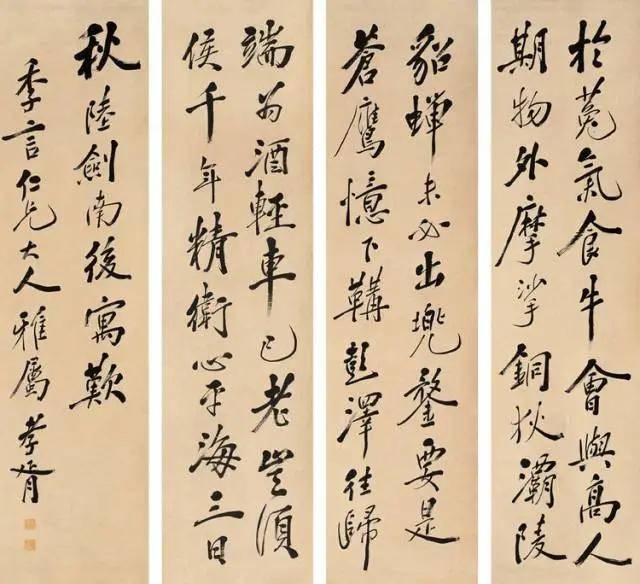 於菟氣食牛會與高人
期物外摩挲銅狄灞陵
貂蟬未必出兜鍪要是
蒼鷹憶下鞲彭澤徃歸
端為酒輕車已老豈須
侯千年精衛心平海三日
秋陸劍南後寓歎
季言仁兄大人雅屬孝胥